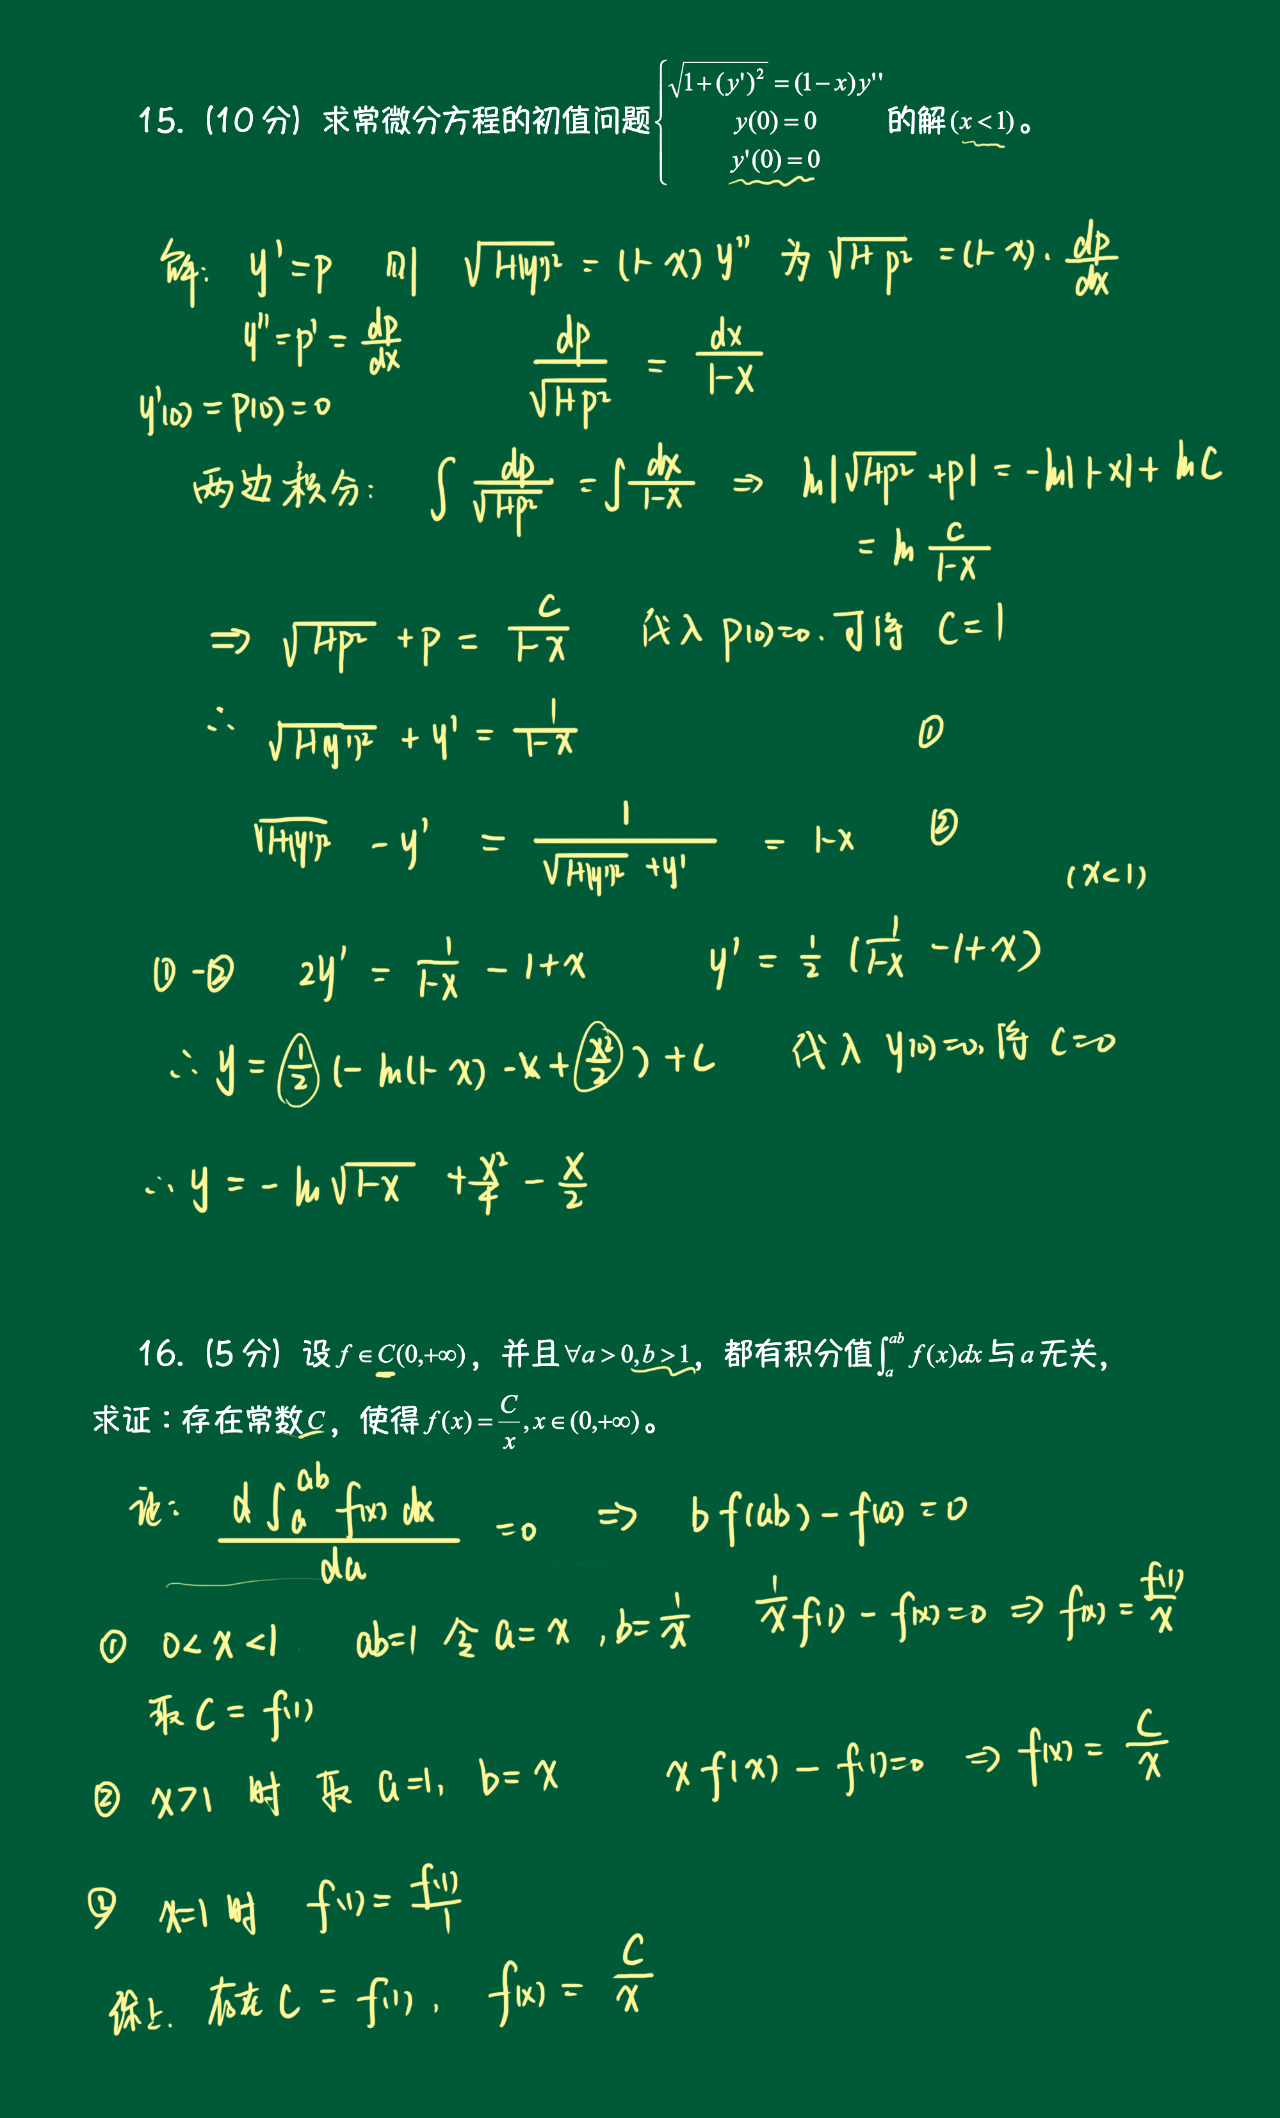 15. (10 分) 求常微分方程的初值问题 { √(1+(y')²) = (1-x)y'' 的解 (x<1)。
y(0) = 0
y'(0) = 0
解: y'=p 则 √(1+(y')²) = (1-x) y'' 为 √(1+p²) = (1-x)· dp/dx
y''=p' = dp/dx dp/√(1+p²) = dx/(1-x)
y'(0) = p(0) = 0
两边积分: ∫ dp/√(1+p²) = ∫ dx/(1-x) ⇒ ln|√(1+p²) + p| = -ln|1-x| + ln C
= ln C/(1-x)
⇒ √(1+p²) + p = C/(1-x) 代入 p(0)=0. 可得 C=1
∴ √(1+(y')²) + y' = 1/(1-x) ①
√(1+(y')²) - y' = 1/(√(1+(y')²) + y') = 1-x ②
(x<1)
①-② 2y' = 1/(1-x) - 1+x y' = 1/2 (1/(1-x) -1+x)
∴ y = 1/2 (- ln(1-x) - x + x²/2) + C 代入 y(0)=0, 得 C=0
∴ y = - ln√(1-x) + x²/4 - x/2
16. (5 分) 设 f ∈ C(0,+∞), 并且 ∀a > 0, b > 1, 都有积分值 ∫ₐᵃᵇ f(x)dx 与 a 无关,
求证: 存在常数 C, 使得 f(x) = C/x, x ∈ (0,+∞)。
证: d∫ₐᵃᵇ f(x) dx / da = 0 ⇒ b f(ab) - f(a) = 0
① 0<x<1 ab=1 令 a=x, b=1/x 1/x f(1) - f(x) = 0 ⇒ f(x) = f(1)/x
取 C = f(1)
② x>1 时 取 a=1, b=x x f(x) - f(1)=0 ⇒ f(x) = C/x
③ x=1 时 f(1) = f(1)/1
综上. 存在 C = f(1), f(x) = C/x